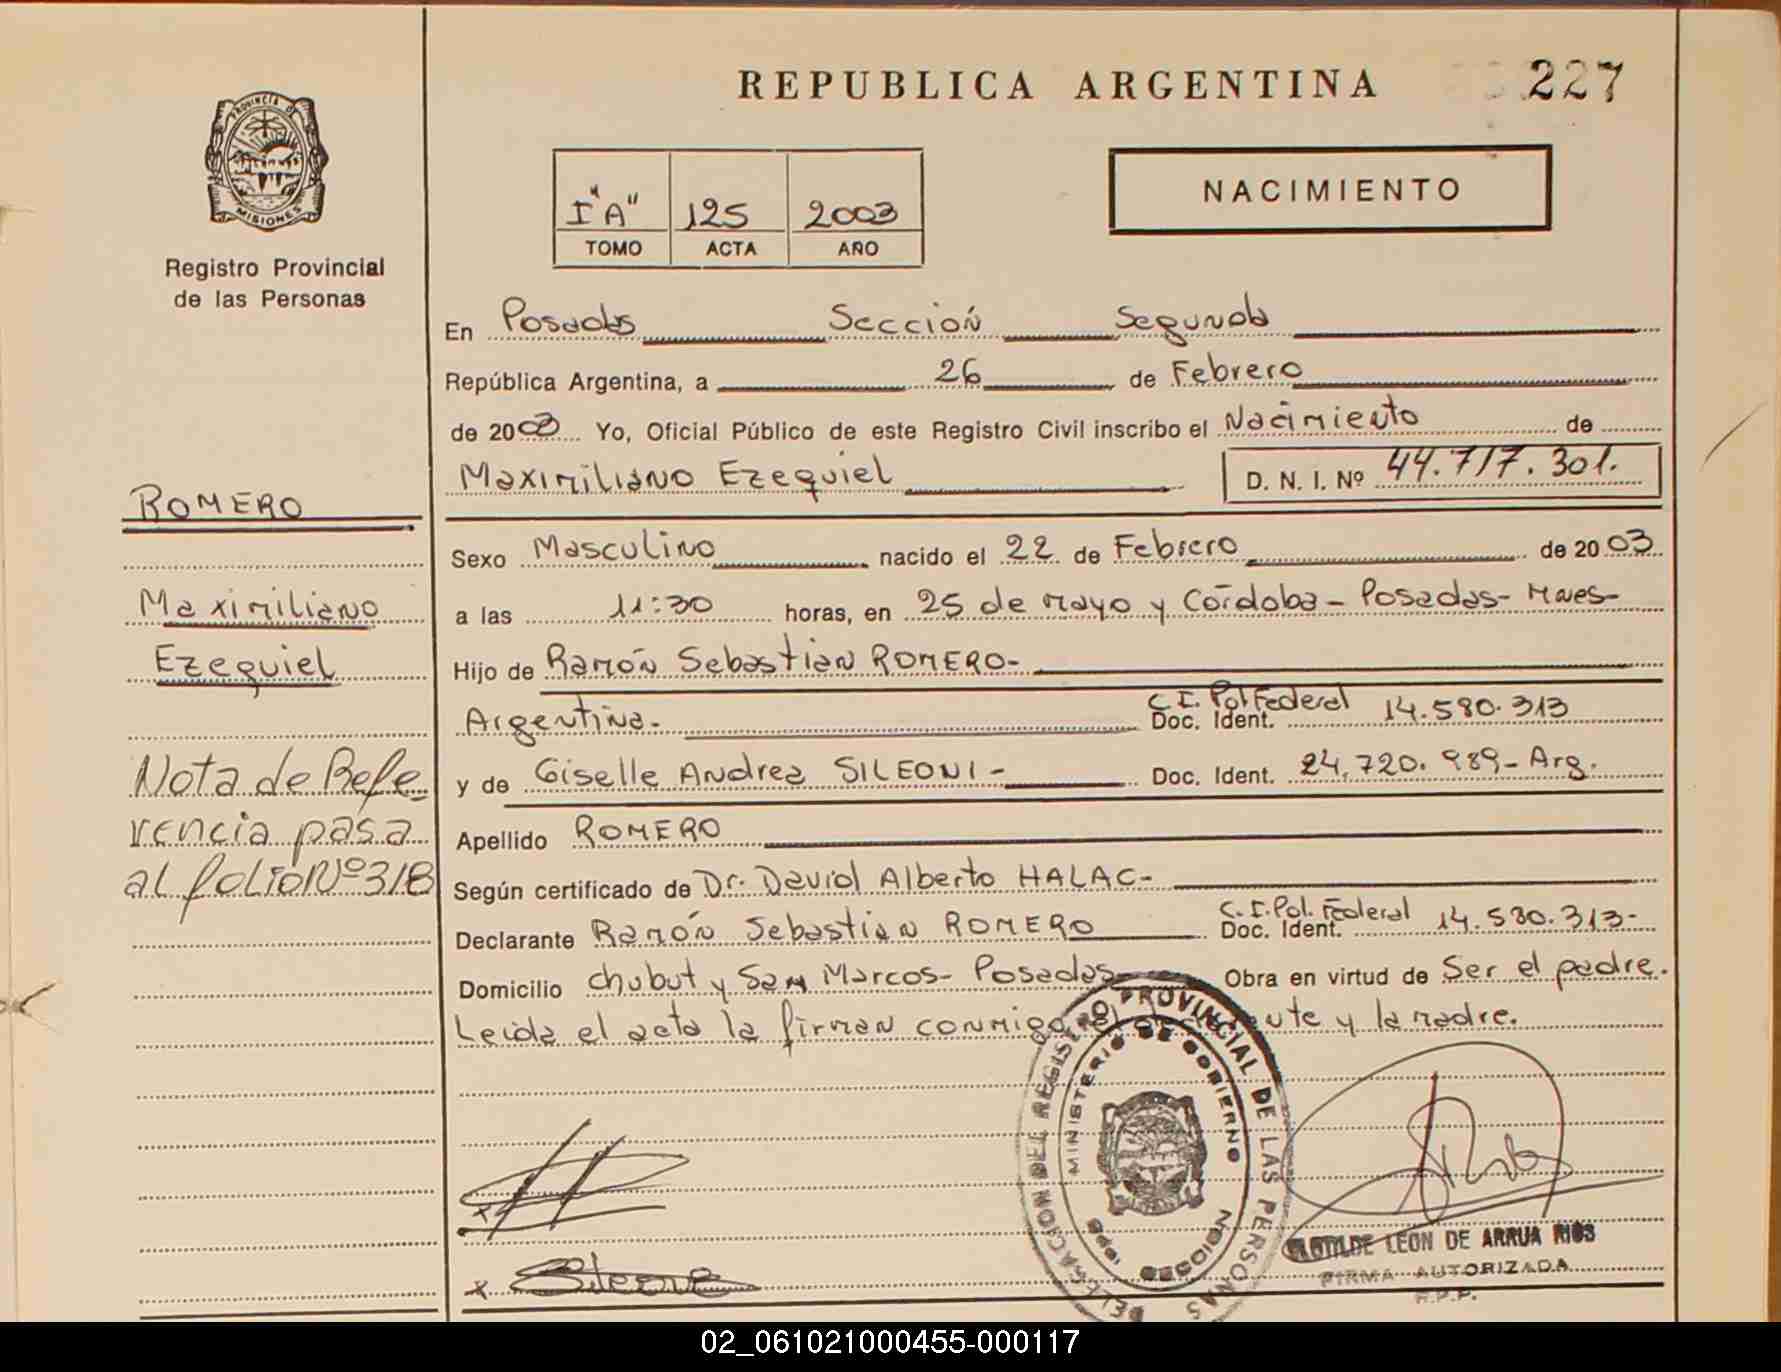 REPUBLICA ARGENTINA
227
PROVINCIA DE
MISIONES
Registro Provincial
de las Personas
I "A" 125 2003
TOMO ACTA AÑO
NACIMIENTO
En Posadas Sección Segunda
República Argentina, a 26 de Febrero
de 2003 Yo, Oficial Público de este Registro Civil inscribo el Nacimiento de
Maximiliano Ezequiel D. N. I. Nº 44.717.301.
Sexo Masculino nacido el 22 de Febrero de 2003
a las 11:30 horas, en 25 de mayo y Córdoba - Posadas - Mnes-
Hijo de Ramón Sebastian ROMERO-
Argentina. C.I. Pol Federal Doc. Ident. 14.580.313
y de Giselle Andrea SILEONI - Doc. Ident. 24.720.989- Arg.
Apellido ROMERO
Según certificado de Dr. David Alberto HALAC-
Declarante Ramón Sebastián ROMERO C.I. Pol. Federal Doc. Ident. 14.580.313-
Domicilio Chubut y San Marcos- Posadas Obra en virtud de Ser el padre.
Leida el acta la firman conmigo el y la madre.
ROMERO
Maximiliano
Ezequiel
Nota de Refe-
rencia pasa
al folio Nº 318
DELEGACION DEL REGISTRO PROVINCIAL DE LAS PERSONAS
MINISTERIO DE GOBIERNO
MISIONES
CLOTILDE LEON DE ARRUA RIOS
FIRMA AUTORIZADA
R.P.P.
02_061021000455-000117